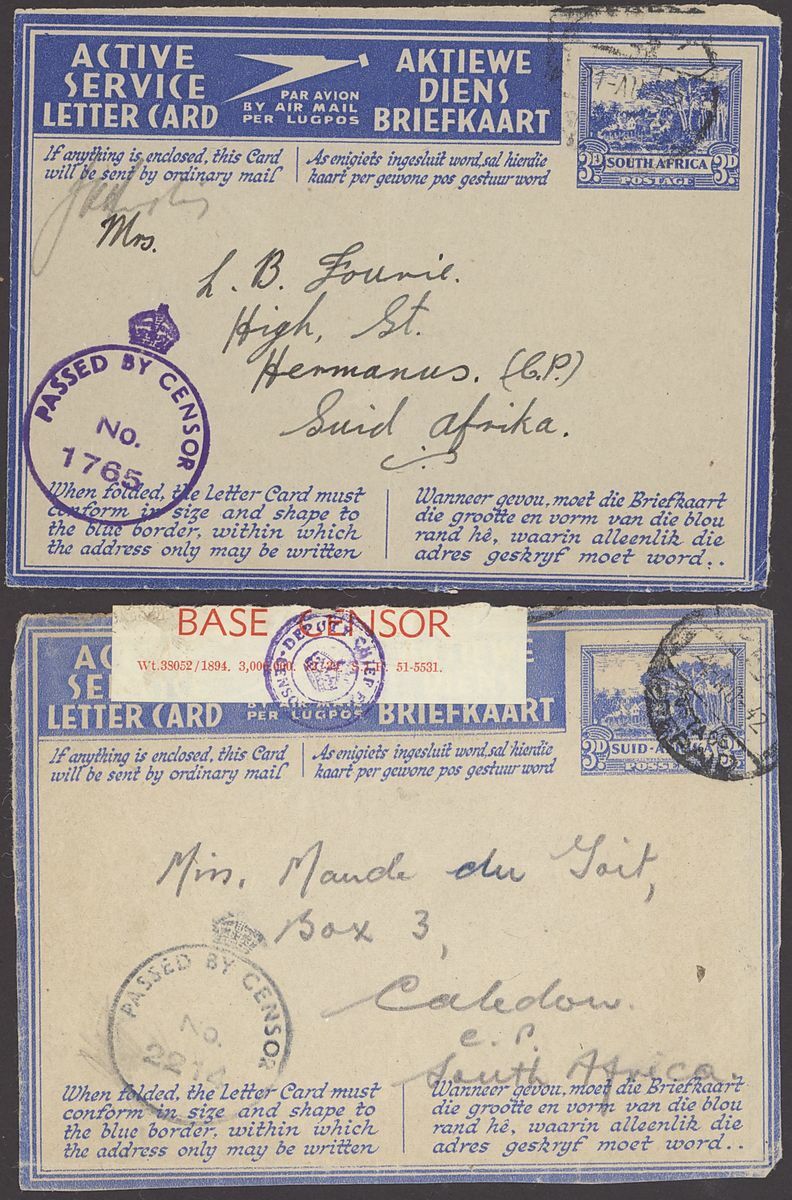 ACTIVE
SERVICE
LETTER CARD
PAR AVION
BY AIR MAIL
PER LUGPOS
AKTIEWE
DIENS
BRIEFKAART
3D SOUTH AFRICA 3D
POSTAGE
If anything is enclosed, this Card
will be sent by ordinary mail
As enigiets ingesluit word, sal hierdie
kaart per gewone pos gestuur word
Mrs.
L. B. Fourie.
High, St.
Hermanus. (C.P.)
Suid Afrika.
PASSED BY CENSOR
No.
1765
When folded, the Letter Card must
conform in size and shape to
the blue border, within which
the address only may be written
Wanneer gevou, moet die Briefkaart
die grootte en vorm van die blou
rand hê, waarin alleenlik die
adres geskryf moet word..
BASE CENSOR
Wt.38052/1894. 3,000,000. 51-5531.
DEPUTY CHIEF
CENSOR
AC
SE
LETTER CARD
PER LUGPOS
BRIEFKAART
3D SUID-A
POSSE
42
If anything is enclosed, this Card
will be sent by ordinary mail
As enigiets ingesluit word, sal hierdie
kaart per gewone pos gestuur word
Miss. Maude du Toit,
Box 3,
Caledon.
C. P.
South Africa.
PASSED BY CENSOR
No.
2214
When folded, the Letter Card must
conform in size and shape to
the blue border, within which
the address only may be written
Wanneer gevou, moet die Briefkaart
die grootte en vorm van die blou
rand hê, waarin alleenlik die
adres geskryf moet word..